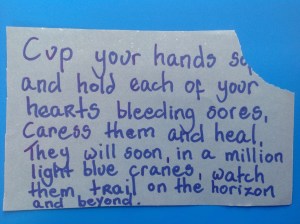 Cup your hands
and hold each of your
hearts bleeding sores,
Caress them and heal,
They will soon, in a million
light blue cranes, watch
them, trail on the horizon
and beyond.